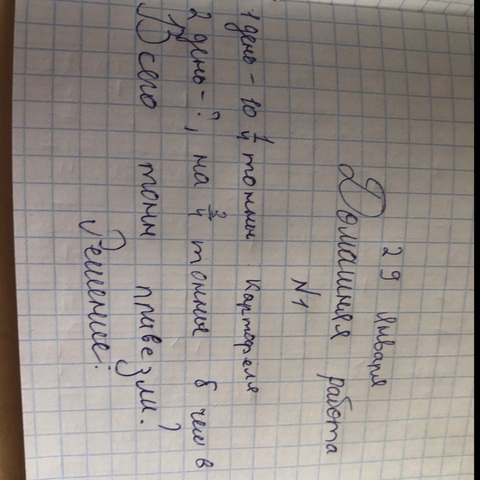 29 января
Домашняя работа
N1
1 день - 10 1/4 тонны картофеля
2 день - ?, на 3/4 тонны б чем в 1
Всего тонн привезли?
Решение: